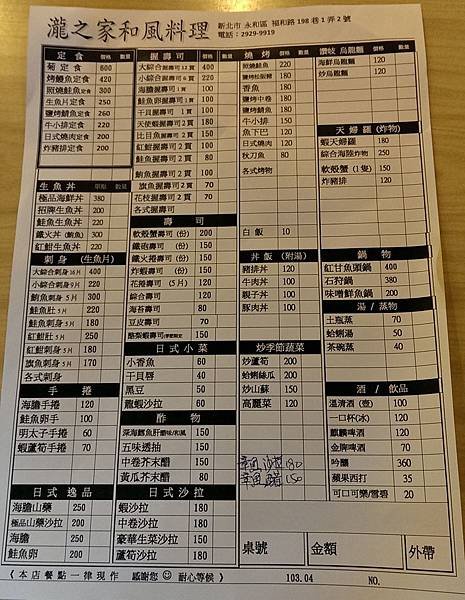 瀧之家和風料理
新北市 永和區 福和路 198 巷 1 弄 2 號
電話：2929-9919
定食 價格 數量
菊定食 600
烤鰻魚定食 420
照燒鮭魚定食 300
生魚片定食 250
鹽烤鯖魚定食 260
牛小排定食 220
日式燒肉定食 200
炸豬排定食 200
生魚丼 單點 數量
極品海鮮丼 380
招牌生魚丼 200
鮭魚生魚丼 220
鐵火丼(鮪魚) 300
紅魽生魚丼 220
刺身(生魚片)
大綜合刺身16片 400
小綜合刺身9片 220
鮪魚刺身 5片 300
鮭魚肚 5片 220
鮭魚刺身 5片 180
紅魽肚 5片 250
紅魽刺身 5片 180
旗魚刺身 5片 170
各式刺身
手捲
海膽手捲 120
鮭魚卵手捲 100
明太子手捲 60
蝦蘆筍手捲 60
日式逸品
海膽山藥 250
極品山藥沙拉 200
海膽 250
鮭魚卵 200
握壽司 價格 數量
大綜合握壽司12貫 400
小綜合握壽司6貫 220
海膽握壽司1貫 100
鮭魚卵握壽司1貫 100
干貝握壽司 1貫 100
天使蝦握壽司2貫 180
比目魚握壽司2貫 150
紅魽握壽司 2貫 100
鮭魚握壽司 2貫 80
鮪魚握壽司 2貫 100
旗魚握壽司 2貫 70
花枝握壽司 2貫 70
各式握壽司
壽司
軟殼蟹壽司 (份) 200
鐵砲壽司 (份) 150
鐵火捲壽司 (份) 150
炸蝦壽司 (份) 150
花捲壽司 (5片) 120
綜合壽司 120
海苔壽司 80
豆皮壽司 70
酪梨蝦壽司 150
日式小菜
小香魚 60
干貝唇 40
黑豆 50
龍蝦沙拉 60
酢物
深海鱈魚肝 150
五味透抽 150
中卷芥末醋 150
黃瓜芥末醋 80
日式沙拉
蝦沙拉 180
中卷沙拉 180
豪華生菜沙拉 150
蘆筍沙拉 180
燒烤 價格 數量
照燒鮭魚 220
鹽烤松阪豬 180
香魚 180
鹽烤中卷 180
鹽烤鯖魚 180
牛小排 150
魚下巴 120
日式燒肉 120
秋刀魚 80
各式烤物
白飯 10
丼飯(附湯)
豬排丼 120
牛肉丼 100
親子丼 100
豚肉丼 100
炒季節蔬菜
炒蘆筍 200
蛤蜊絲瓜 200
炒山蘇 150
高麗菜 120
章魚沙拉 180
章魚醋 150
讚岐 烏龍麵 價格 數量
海鮮烏龍麵 120
炒烏龍麵 120
天婦羅(炸物)
蝦天婦羅 180
綜合海陸炸物 250
軟殼蟹 (1隻) 150
炸豬排 120
鍋物
紅甘魚頭鍋 400
石狩鍋 380
味噌鮮魚鍋 200
湯/蒸物
土瓶蒸 70
蛤蜊湯 50
茶碗蒸 40
酒/飲品
溫清酒(壺) 100
一口杯(冰) 120
麒麟啤酒 120
金牌啤酒 70
吟釀 360
蘋果西打 35
可口可樂/雪碧 20
桌號 金額 外帶
(本店餐點一律現作 感謝您☺耐心等候) 103.04 NO.